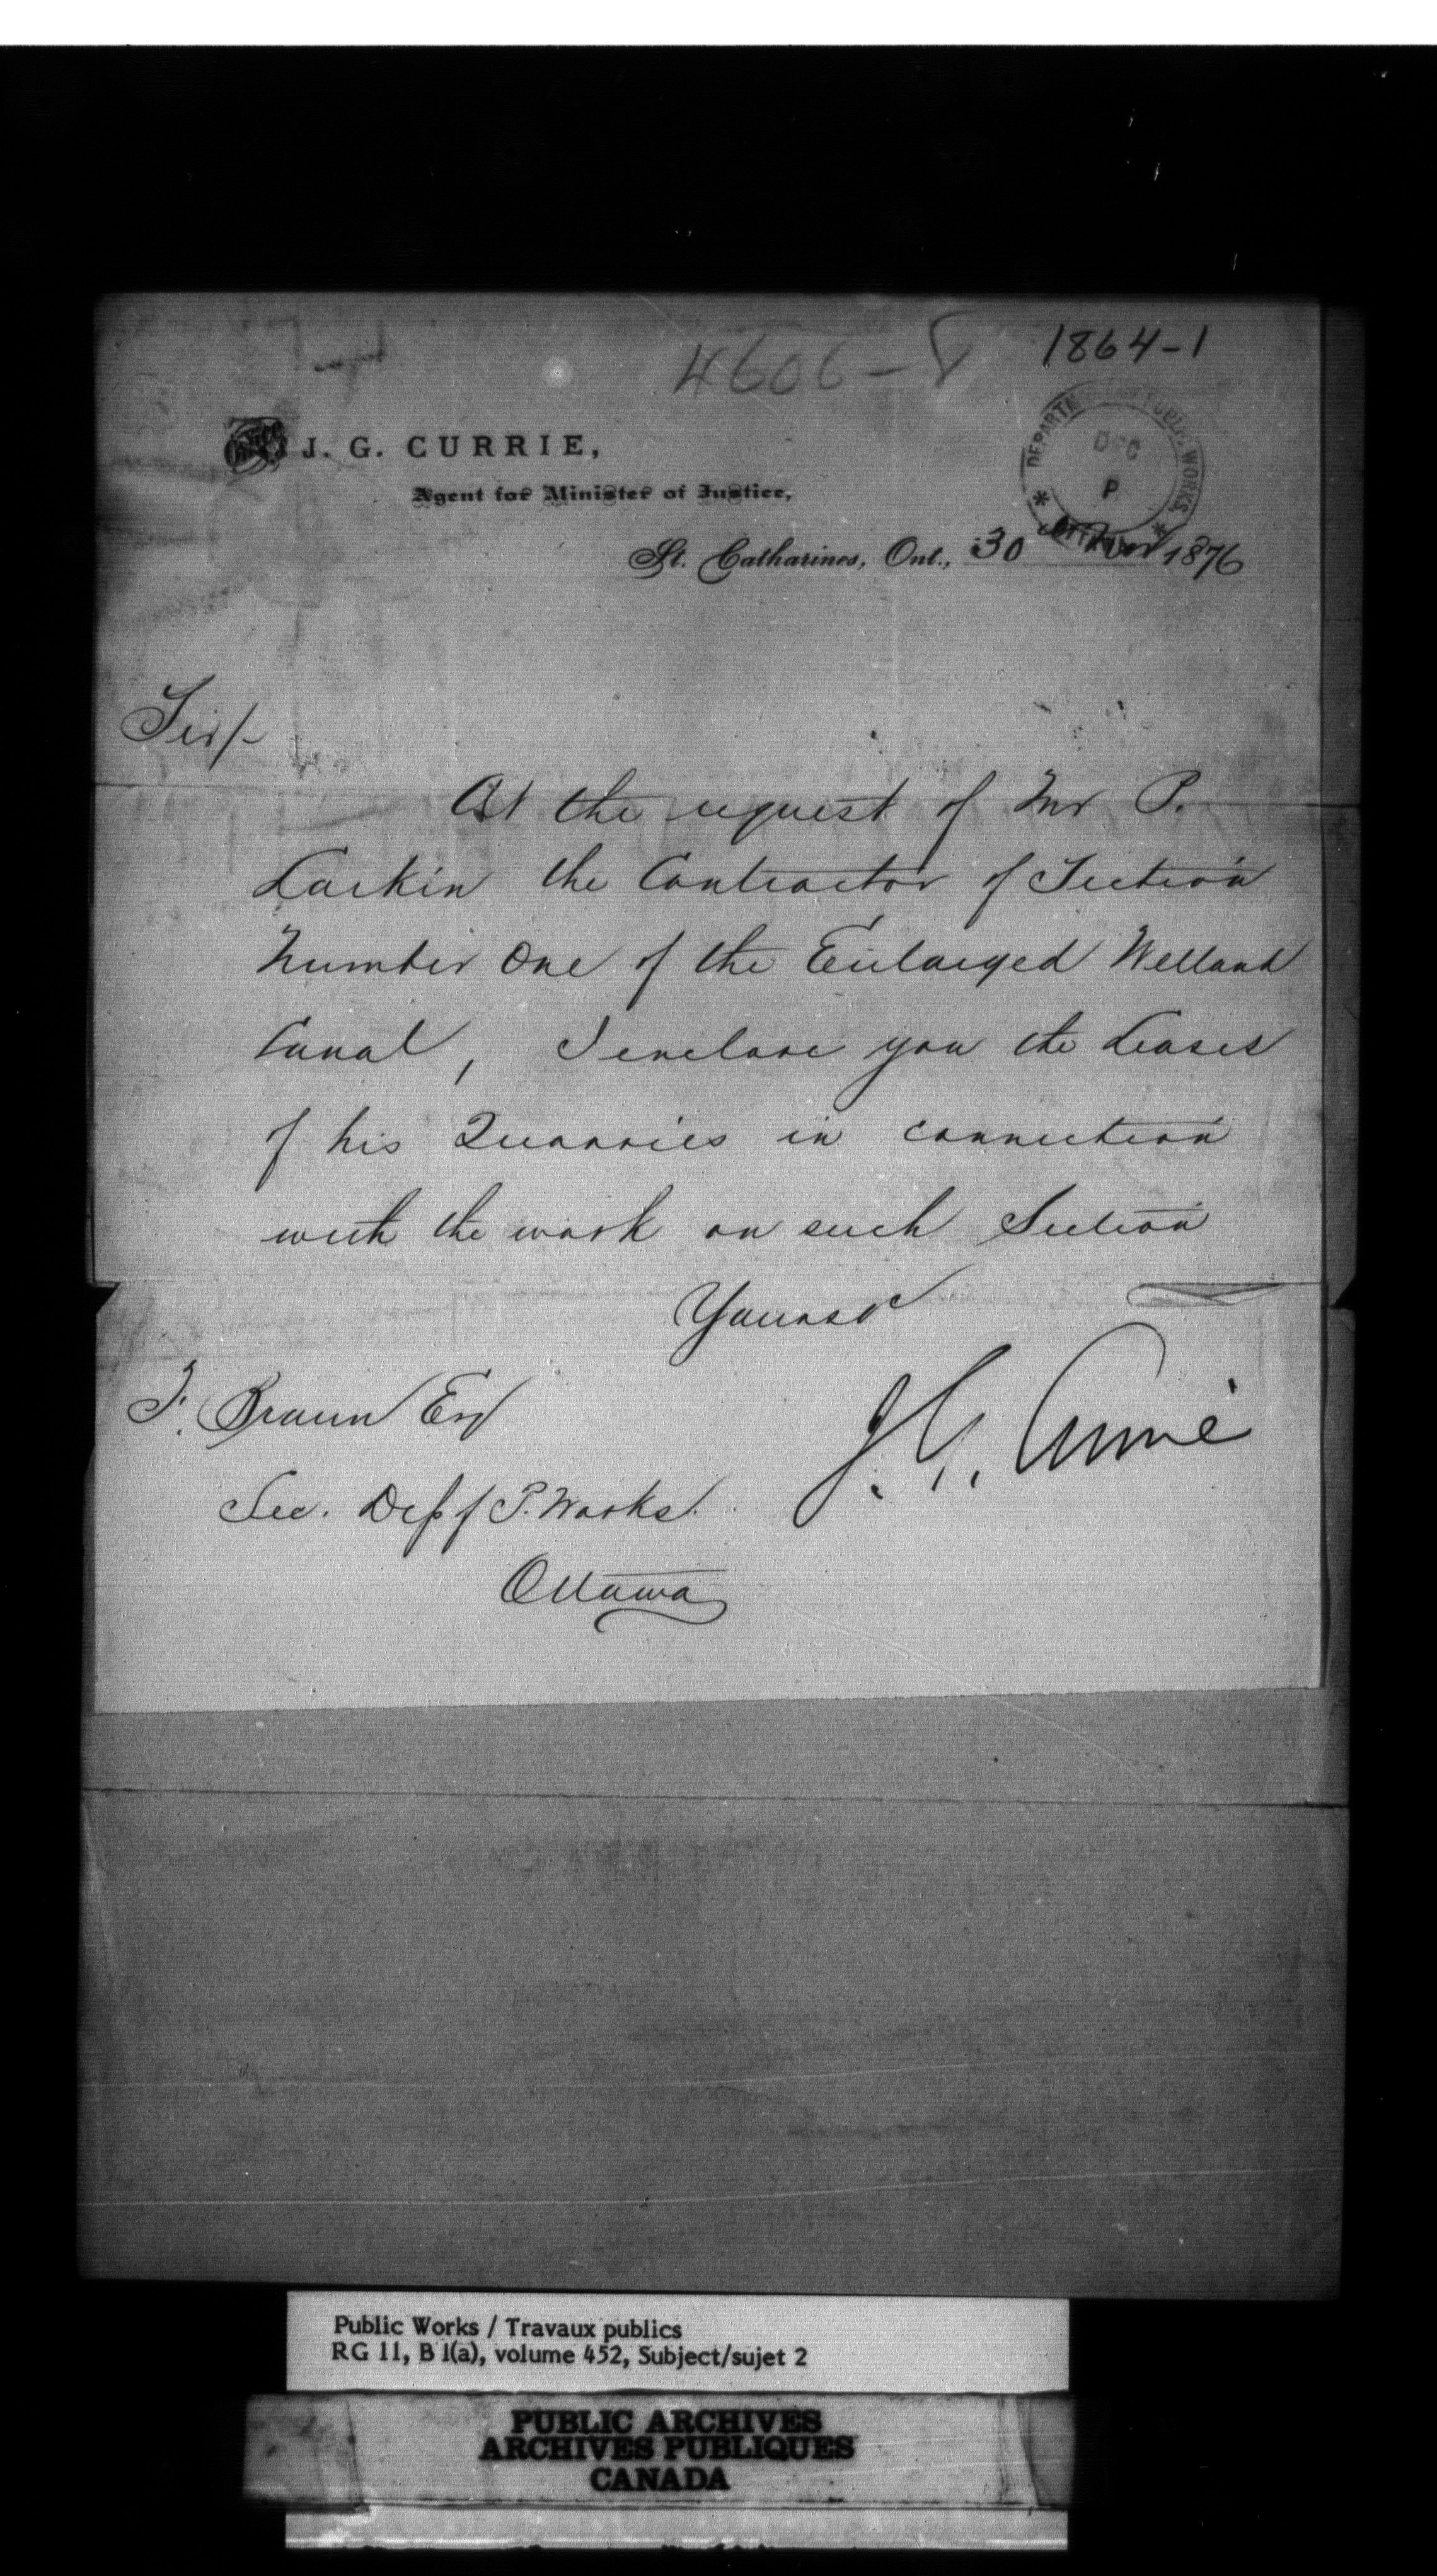 4606-8
1864-1
Office
J. G. CURRIE,
Agent for Minister of Justice,
DEPARTM PUBLIC WORKS.
DEC
P
St. Catharines, Ont., 30 Nov 1876
Sir/-
At the request of Mr P.
Larkin the Contractor of Section
Number One of the Enlarged Welland
Canal, I enclose you the Leases
of his Quarries in connection
with the work on such Section
Yours
F. Braun Esq
J. G. Currie
Sec. Dep of P. Works.
Ottawa
Public Works / Travaux publics
RG 11, B 1(a), volume 452, Subject/sujet 2
PUBLIC ARCHIVES
ARCHIVES PUBLIQUES
CANADA